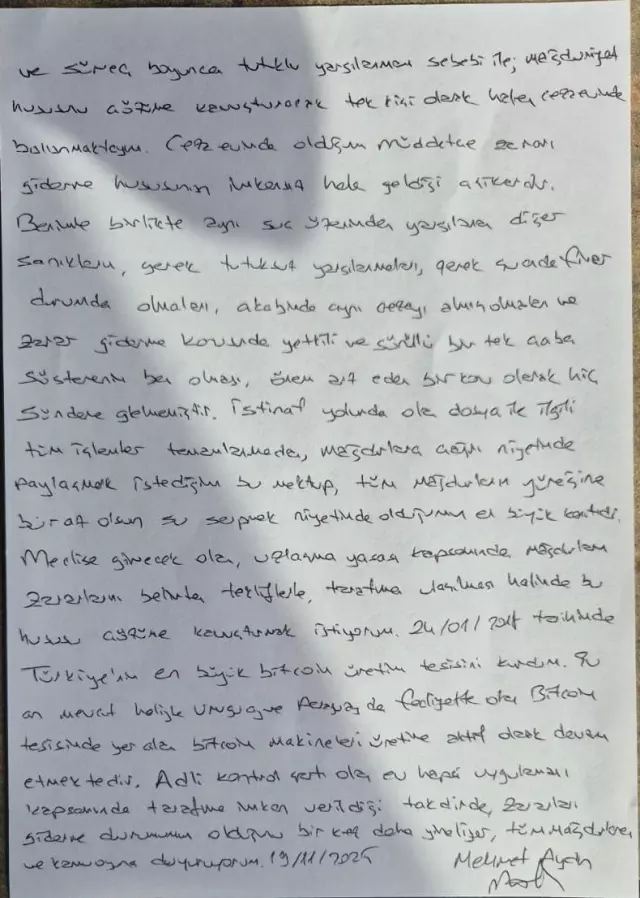 ve süreç boyunca tutuklu yargılanmam sebebi ile; mağduriyet
hususunu çözüme kavuşturacak tek kişi olarak halen cezaevinde
bulunmaktayım. Cezaevinde olduğum müddetçe zararı
giderme hususunun imkansız hale geldiği aşikardır.
Benimle birlikte aynı suç üzerinden yargılanan diğer
sanıkların, gerek tutuksuz yargılanmaları, gerek şu anda firar
durumda olmaları, akabinde aynı cezayı almış olmaları ve
zarar giderme konusunda yetkili ve gönüllü bir tek çaba
gösterenin ben olması, önem arz eden bir konu olarak hiç
gündeme gelmemiştir. İstinaf yolunda olan dosya ile ilgili
tüm işlemler tamamlanmadan, mağdurlara çağrı niyetinde
paylaşmak istediğim bu mektup, tüm mağdurların yüreğine
biraz olsun su serpmek niyetinde olduğumun en büyük kanıtıdır.
Meclise girecek olan, uzlaşma yasası kapsamında, mağdurların
zararlarını belirten tekliflerle, tarafıma ulaşılması halinde bu
hususu çözüme kavuşturmak istiyorum. 24/01/2018 tarihinde
Türkiye'nin en büyük bitcoin üretim tesisini kurdum. Şu
an mevcut haliyle Uruguay ve Paraguay da faaliyette olan Bitcoin
tesisinde yer alan bitcoin makineleri üretime aktif olarak devam
etmektedir. Adli kontrol şartı olan ev hapsi uygulaması
kapsamında tarafıma imkan verildiği takdirde, zararları
giderme durumumun olduğunu bir kez daha yineliyor, tüm mağdurlara
ve kamuoyuna duyuruyorum. 19/11/2025 Mehmet Aydın